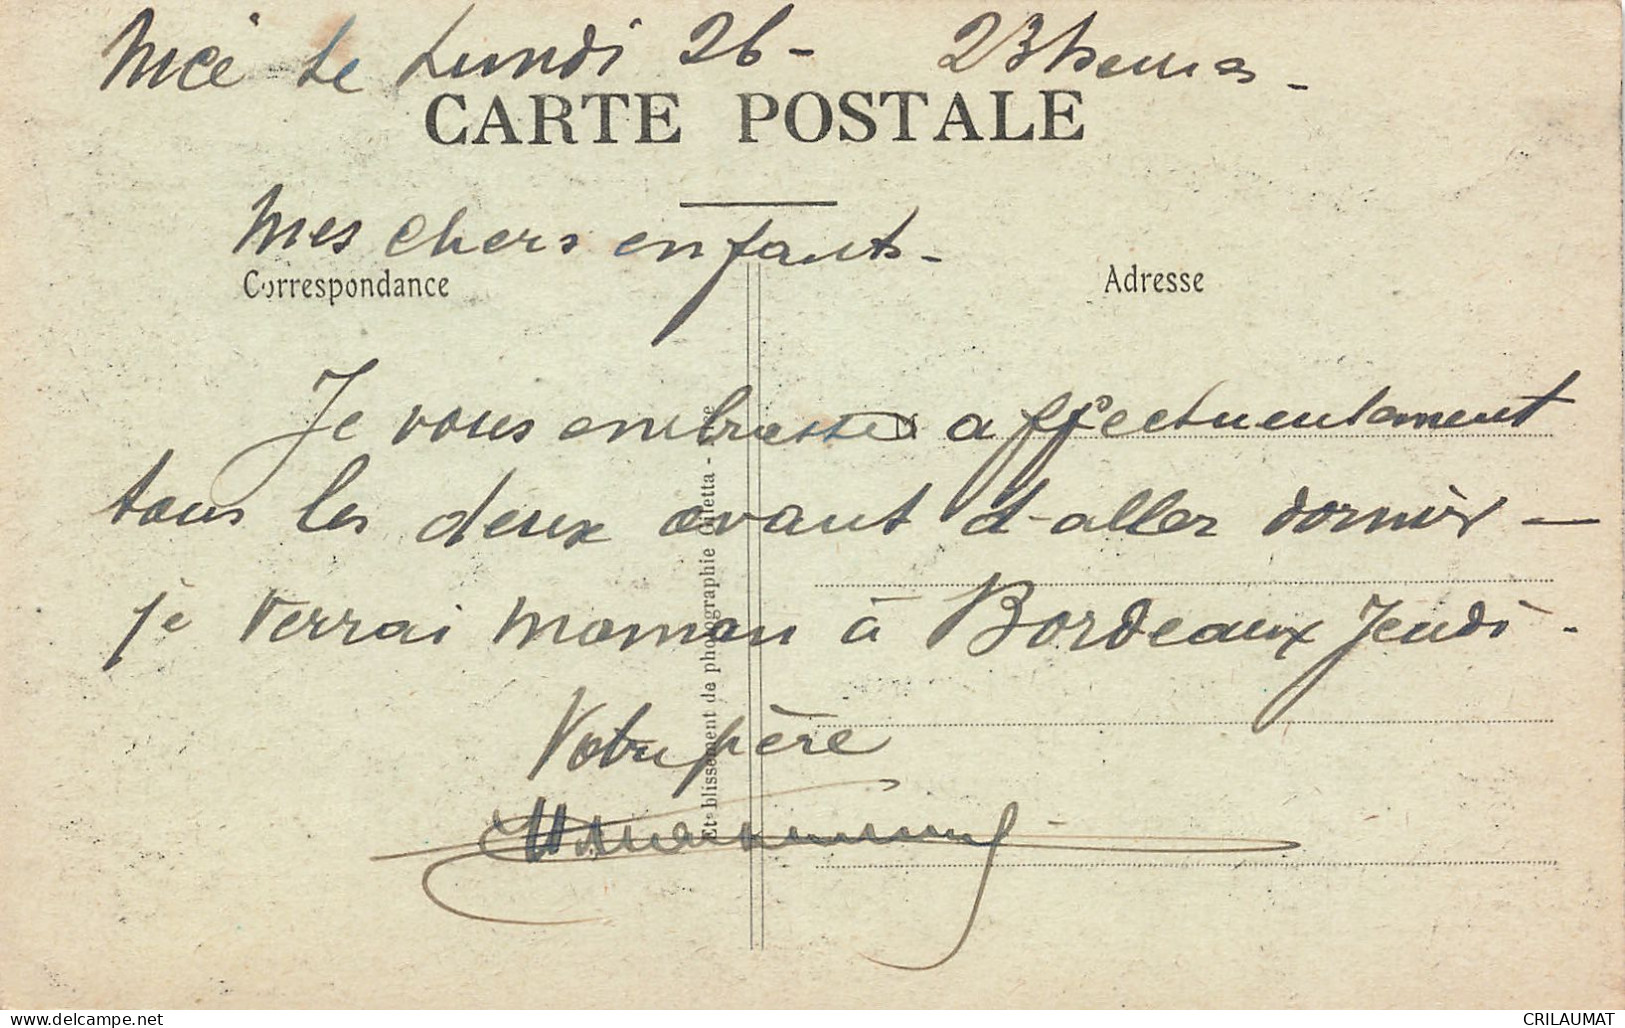 Nice le Lundi 26 - 23 heures -
CARTE POSTALE
Mes chers enfants -
Correspondance
Adresse
Je vous embrasse affectueulement
tous les deux avant d'aller dormir —
je verrai maman à Bordeaux Jeudi -
Votre père
Etablissement de photographie Giletta - Nice
www.delcampe.net
CRILAUMAT